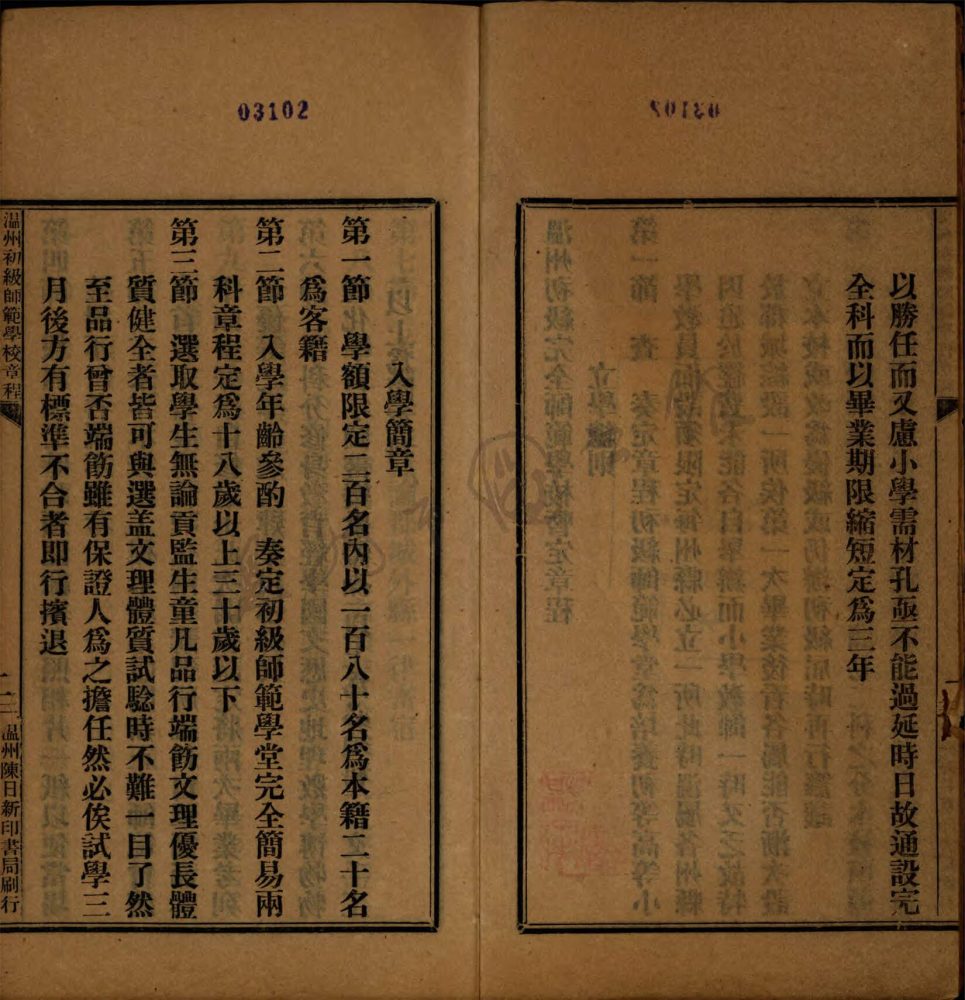 03102
以勝任而又慮小學需材孔亟不能過延時日故通設完
全科而以畢業期限縮短定爲三年
03102
入學簡章
第一節　學額限定二百名內以一百八十名爲本籍二十名
爲客籍
第二節　入學年齡參酌　奏定初級師範學堂完全簡易兩
科章程定爲十八歲以上三十歲以下
第三節　選取學生無論貢監生童凡品行端飭文理優長體
質健全者皆可與選盖文理體質試騐時不難一目了然
至品行曾否端飭雖有保證人爲之擔任然必俟試學三
月後方有標準不合者即行擯退
温州初級師範學校章程
二
温州陳日新印書局刷行